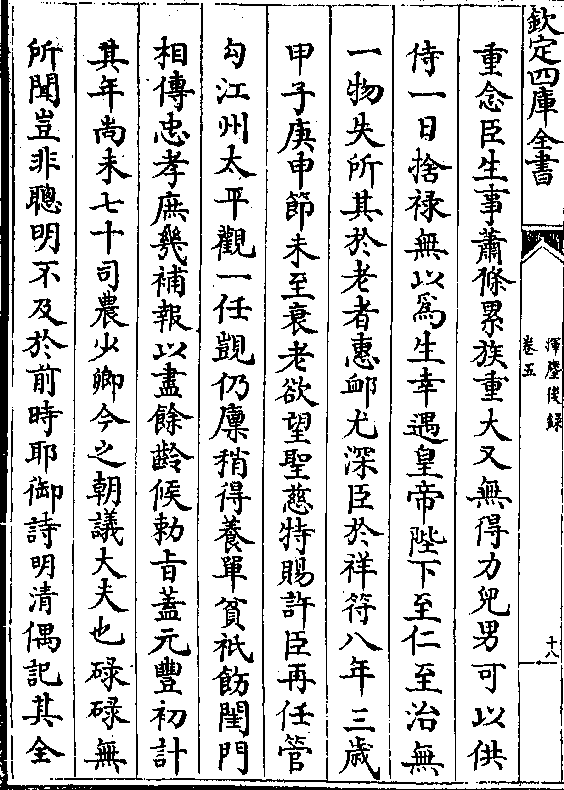 欽定四庫全書
揮麈後錄
卷五
十八
重念臣生事蕭條累族重大又無得力兒男可以供
侍一日捨祿無以爲生幸遇皇帝陛下至仁至治無
一物失所其於老者惠䘏尤深臣於祥符八年三歲
甲子庚申節未至衰老欲望聖慈特賜許臣再任管
勾江州太平觀一任覬仍廪稍得養單貧祇飭閨門
相傳忠孝庶幾補報以盡餘齡候勅㫖葢元豐初計
其年尚未七十司農少卿今之朝議大夫也碌碌無
所聞豈非聰明不及於前時耶御詩明清偶記其全